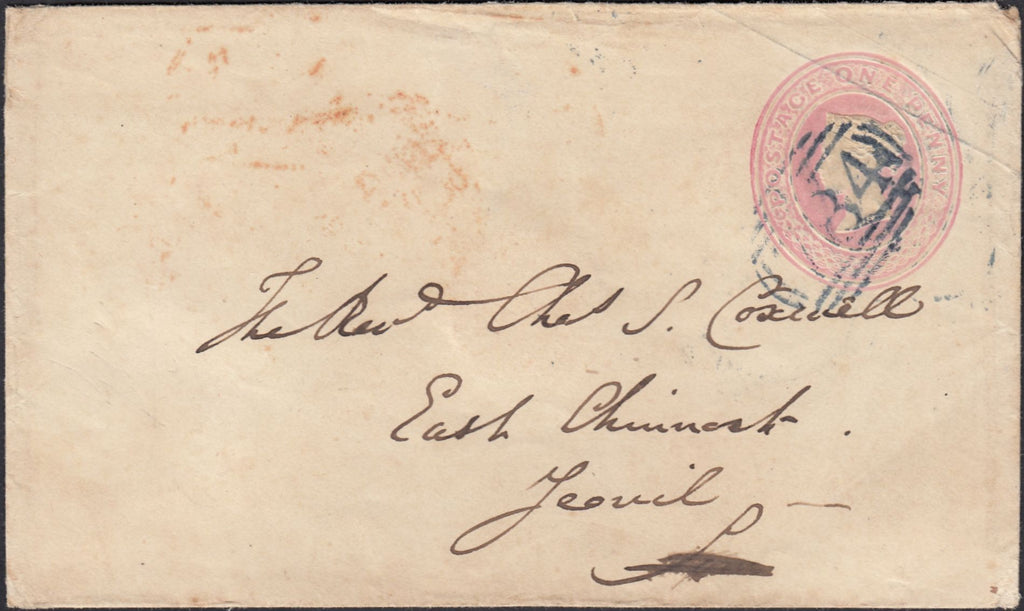 POSTAGE ONE PENNY
34
The Revd Chas S. Coxwell
East Chinnock.
Yeovil —